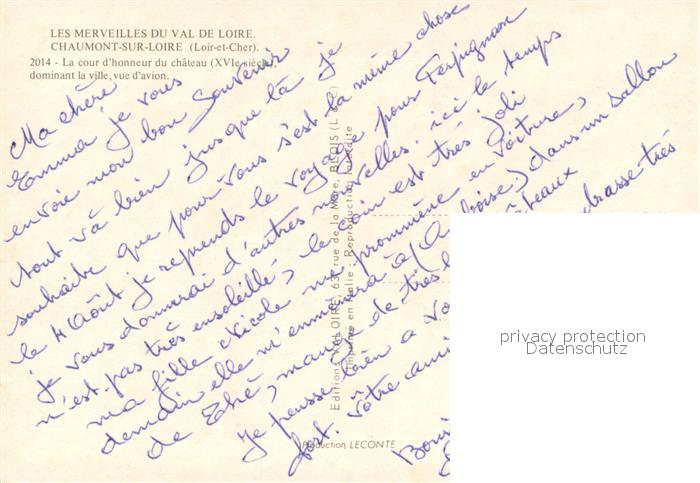 LES MERVEILLES DU VAL DE LOIRE.
CHAUMONT-SUR-LOIRE (Loir-et-Cher).
2014 - La cour d'honneur du château (XVIe siècle),
dominant la ville, vue d'avion.
Ma chère
Emma je vous
envoie mon bon souvenir
tout và bien jusque là je
souhaite que pour vous s'est la même chose
le 4 Août je reprends le voyage pour Perpignan
je vous donnerai d'autres nouvelles. ici le temps
n'est pas très ensoleillé, le coin est très joli
ma fille Nicole me prommène en voiture,
demain elle m'emmenra à (Amboise) dans un sallon
de Thé, manger de très gâteaux
Je pensse bien a vo embrasse très
fort. Vôtre ami
Editions VALOIRE, 63, rue de la Mare, BLOIS (L.
Imprimé en Italie Reproduction interdite
Production LECONTE
privacy protection
Datenschutz